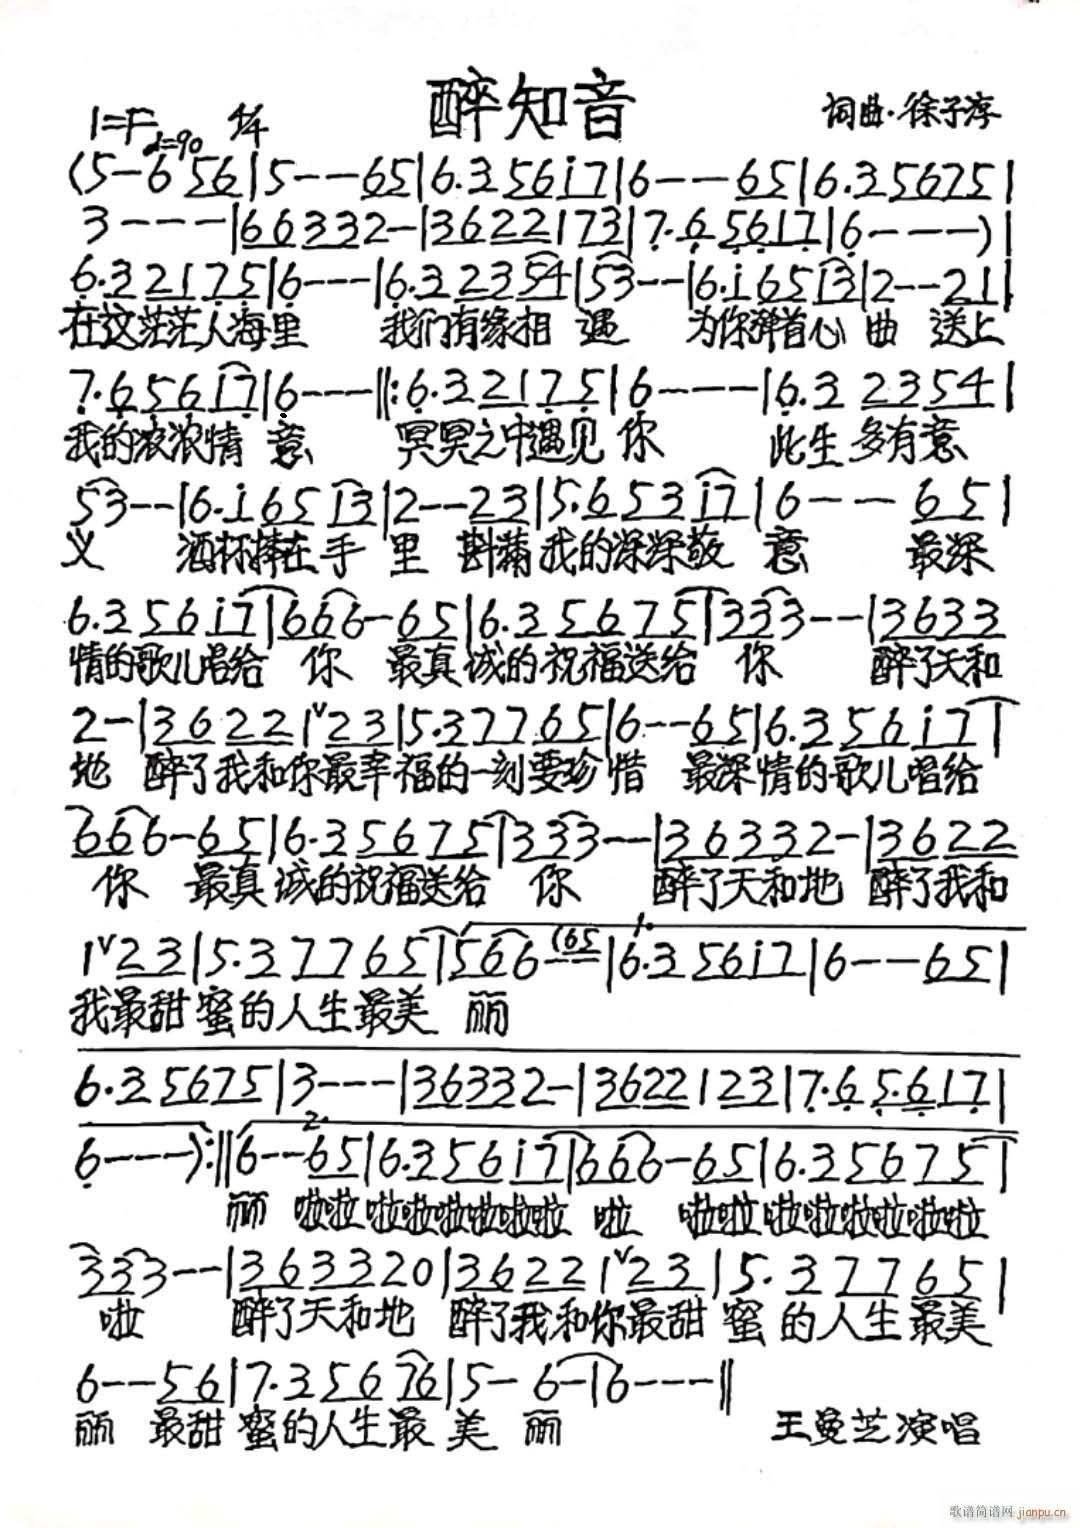 醉知音
1=F ♩=90 4/4 词曲·徐子淳
(5-6 56|5---65|6.35617|6---65|6.35675|
3----|663332-|3622173|7.65617|6----)|
6.32175|6---|6.32354|53--|6.16513|2--21|
在这茫茫人海里 我们有缘相遇 为你弹首心曲 送上
7.65617|6---‖:6.32175|6----|6.32354|
我的浓浓情意 冥冥之中遇见你 此生多有意
53--|6.16513|2--23|5.65317|6---65|
义 酒杯捧在手里 斟满我的深深敬意 最深
6.35617|666-65|6.35675|333--|3633
情的歌儿唱给你 最真诚的祝福送给你 醉了天和
2-|36221ᵛ23|5.37765|6--65|6.35617|
地 醉了我和你最幸福的一刻要珍惜 最深情的歌儿唱给
666-65|6.35675|333--|36332-|3622
你 最真诚的祝福送给你 醉了天和地 醉了我和
1ᵛ23|5.37765|566--(65|1.6.35617|6--65|
我最甜蜜的人生最美丽
6.35675|3---|36332-|3622123|7.65.617|
6----):‖2.6--65|6.35617|666-65|6.35675|
丽 啦啦啦啦啦啦啦啦 啦 啦啦啦啦啦啦啦啦
333--|363320|36221ᵛ23|5.37765|
啦 醉了天和地 醉了我和你最甜蜜的人生最美
6--56|7.35676|5-6-|6----‖
丽 最甜蜜的人生最美丽 王曼芝演唱
歌谱简谱网 jianpu.cn